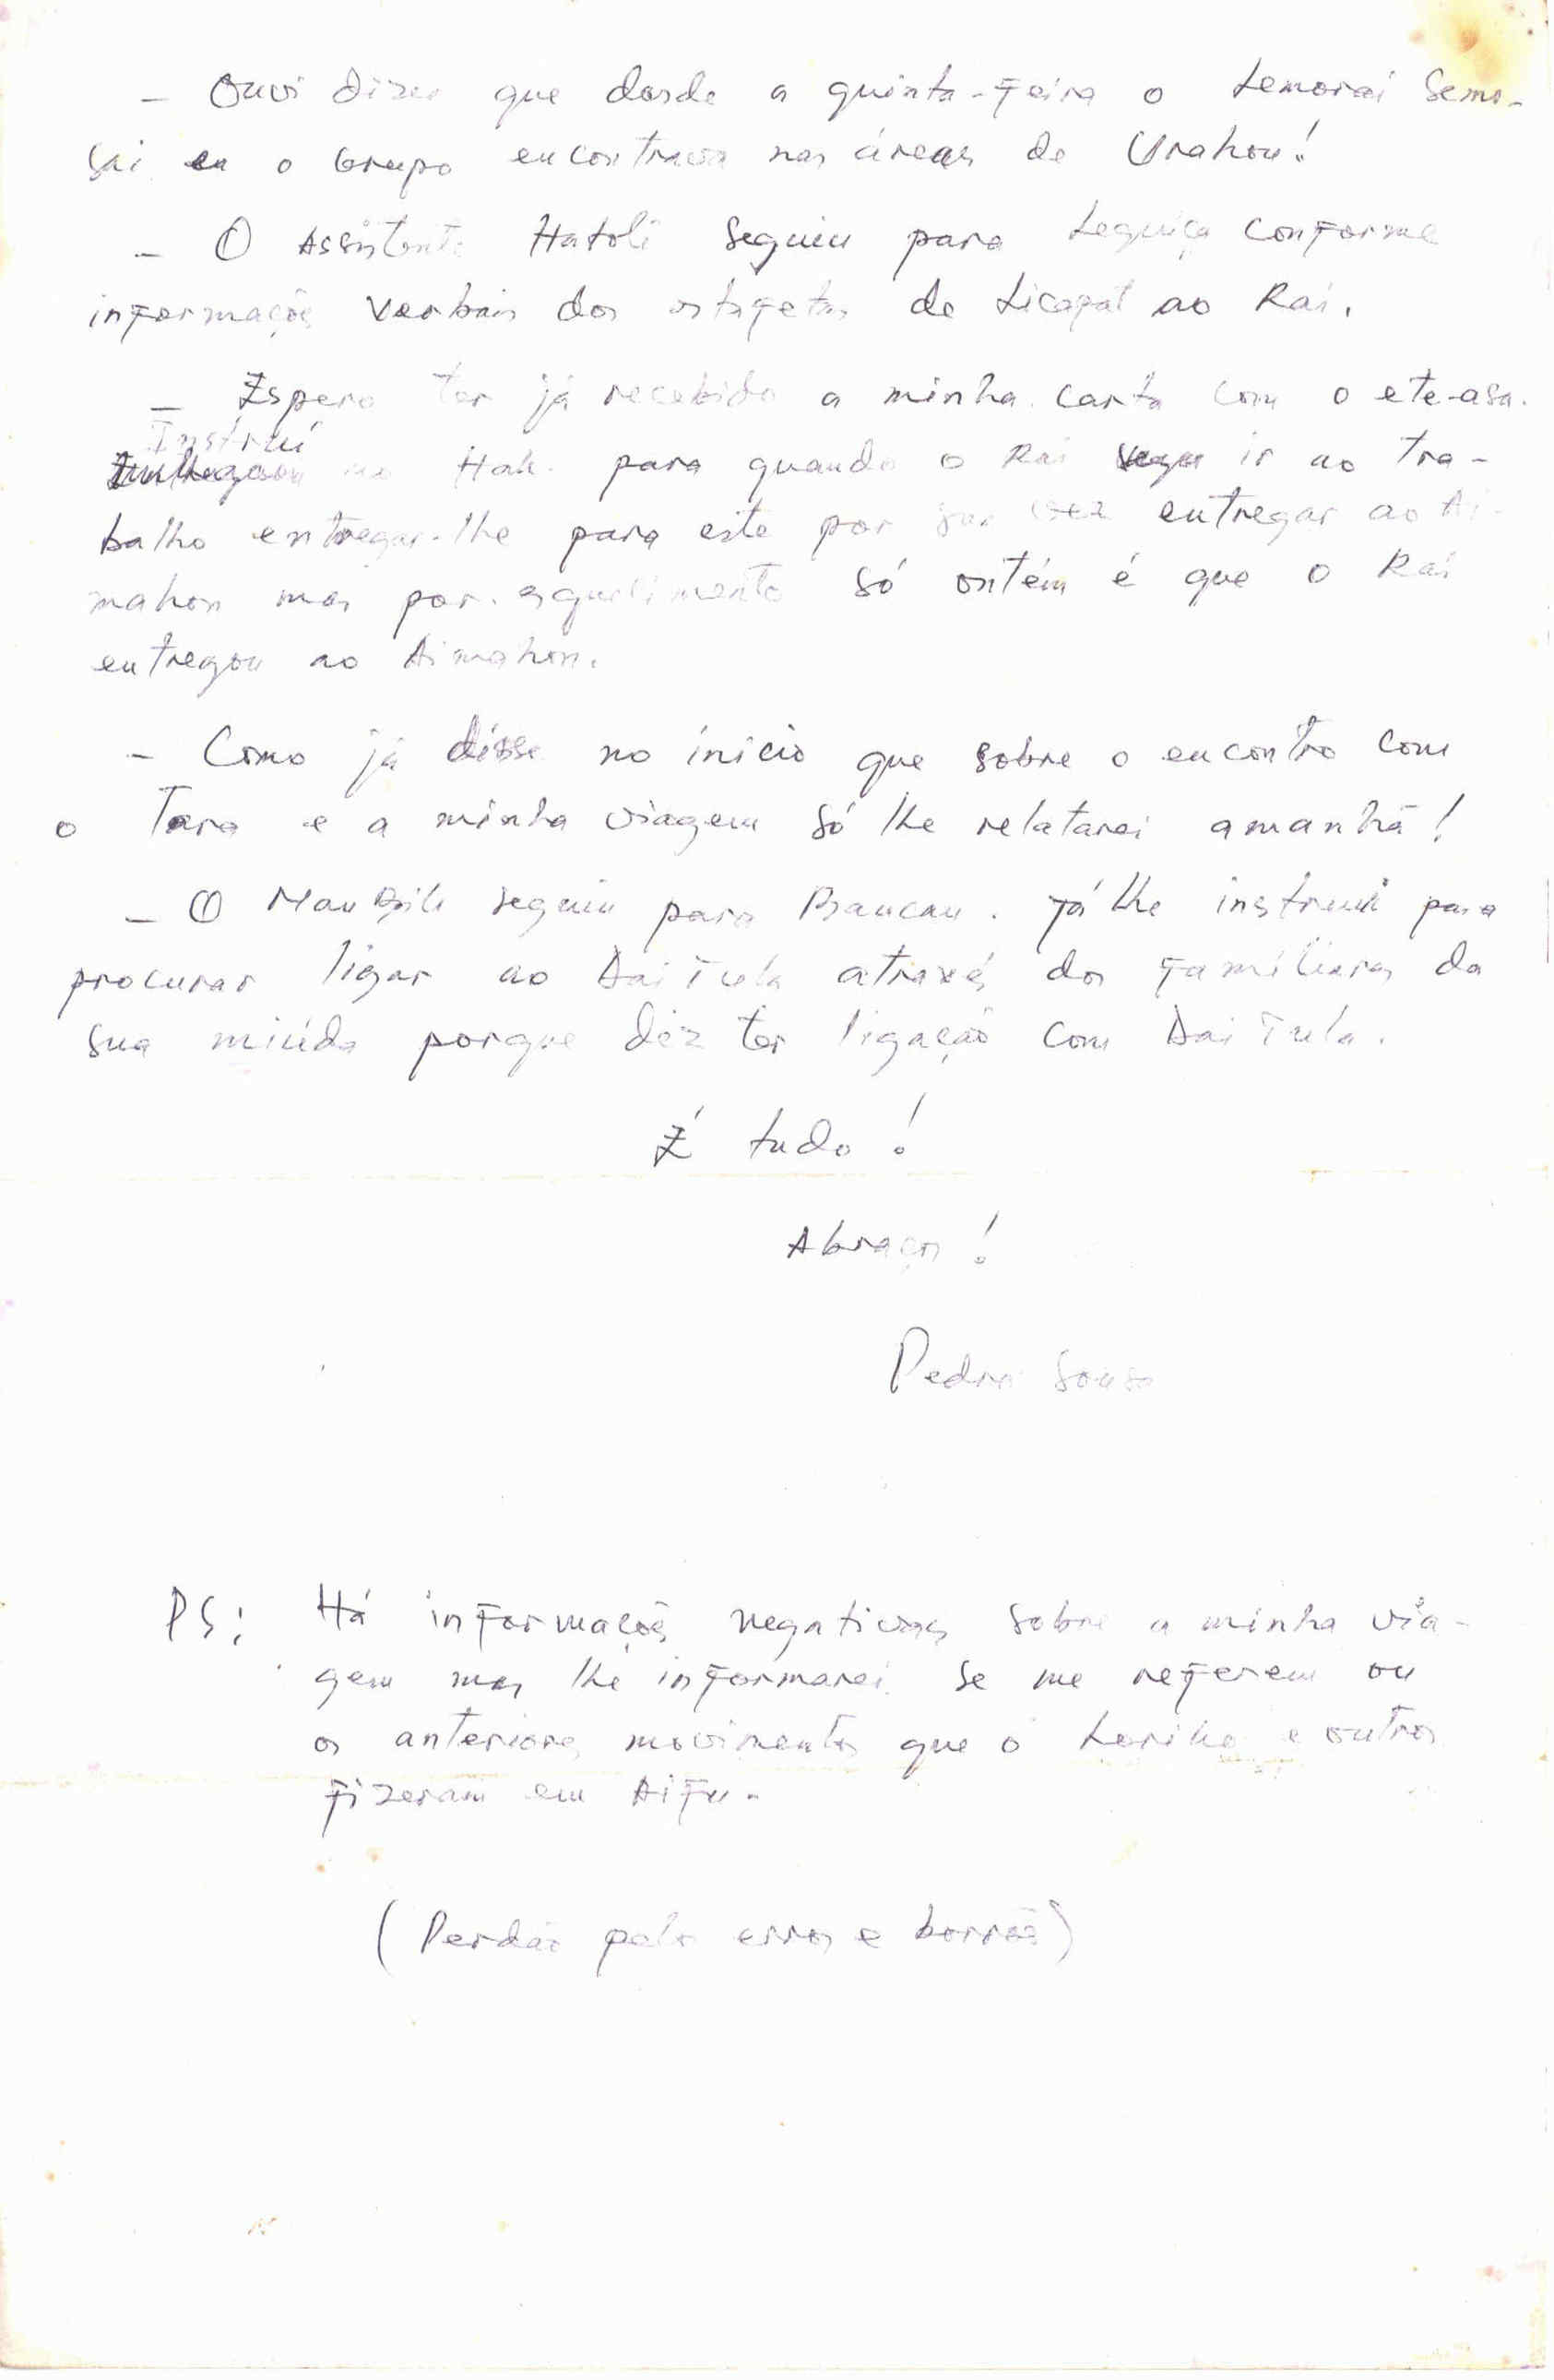 - Ouvi dizer que desde a quinta-feira o Lemorai Semo-
sai e o Grupo encontrava nas áreas de Urahou!
- O Assistente Hatoli seguiu para Leguiça conforme
informações verbais dos estafetas de Licapat ao Rai.
- Espero ter já recebido a minha carta com o ete-asa.
Instruí Hak. para quando o Rai ir ao tra-
balho entregar-lhe para este por sua vez entregar ao Ai-
mahon mas por esquecimento só ontém é que o Rai
entregou ao Aimahon.
- Como já disse no início que sobre o encontro com
o Tara e a minha viagem só lhe relatarei amanhã!
- O Mau seguiu para Baucau. Já lhe instruí para
procurar ligar ao Dai Tula através dos famíliares da
sua miúda porque diz ter ligação com Dai Tula.
É tudo!
Abraços!
Pedro Sousa
PS: Há informações negativas sobre a minha via-
gem mas lhe informarei se me referem ou
os anteriores movimentos que o Leriho e outros
fizeram em Aifu.
(Perdão pelos erros e borrões)